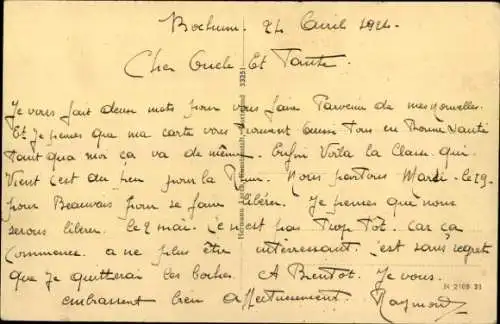 Bochum. 24 Avril 1924.
Cher Oncle Et Tante.
Je vous fait deux mots pour vous faire Parvenir de mes nouvelles.
Et Je penses que ma carte vous trouvent aussi Tous en Bonne Santé
Tant qua moi ça va de même. Enfin Voila la Classe qui
Vient c'est du peu pour la Nous partons Mardi le 29
pour Beauvais pour se faire libérer. Je penses que nous
serons libérer le 2 mai. Ce n'est pas Trop Tôt. Car ça
Commence a ne plus être intéressant. C'est sans regret
que Je quitterai les boches. A Bientot. Je vous
embrassent bien affectueusement. Raymond
Hermann Dortmund 33251
N 2169 31